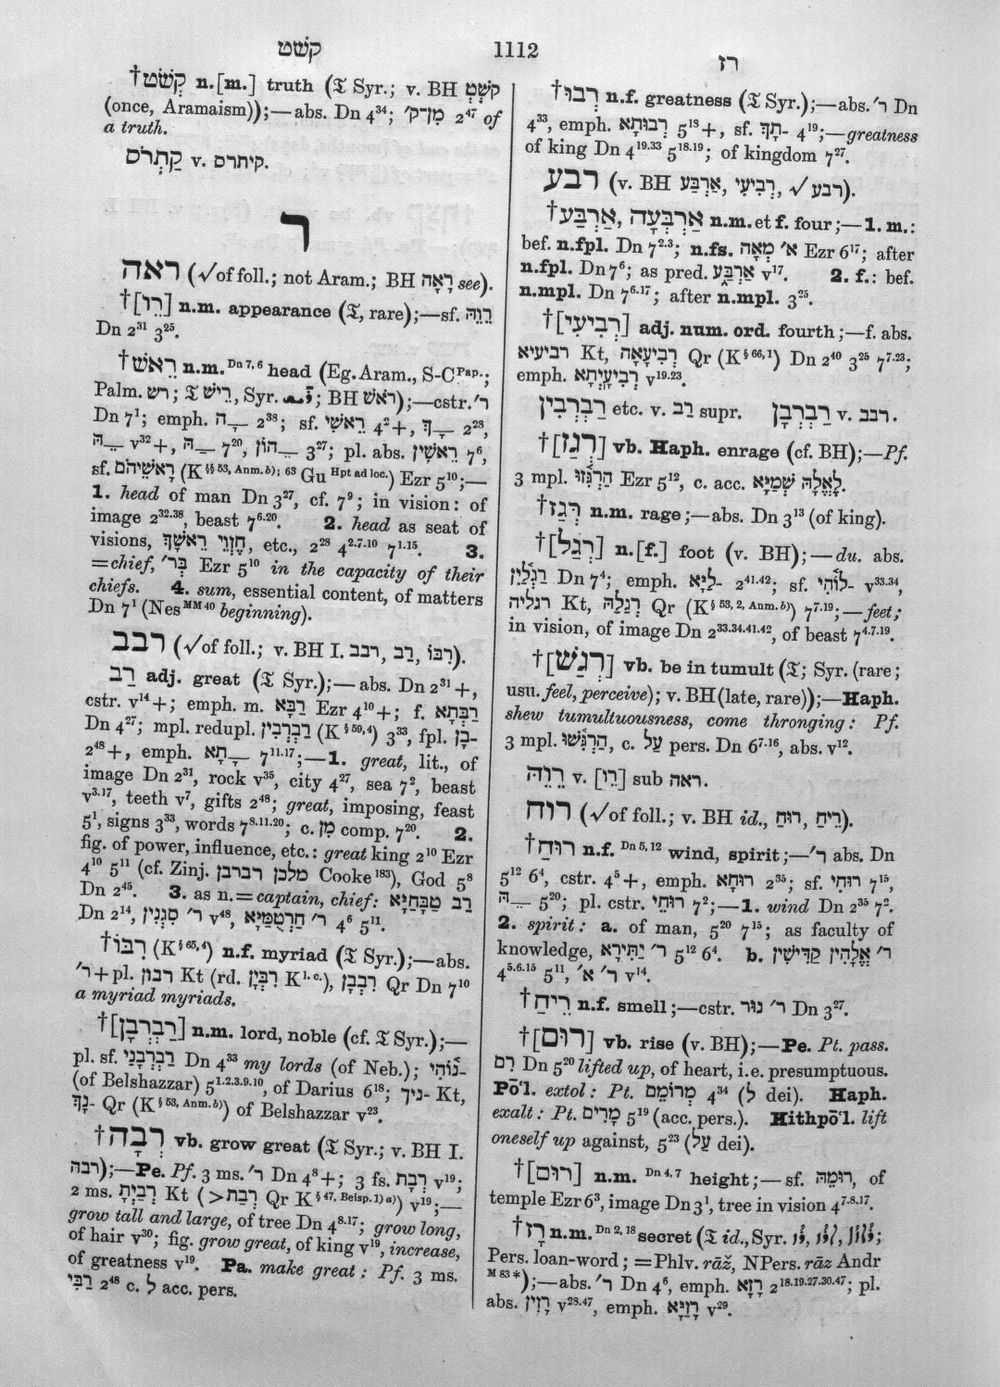 קשט
1112
רז
†קְשֹׁט n.[m.] truth (𝔗 Syr.; v. BH קֹשְׁטְ
(once, Aramaism));—abs. Dn 4³⁴; מִן־ק׳ 2⁴⁷ of
a truth.
קַתְרֹס v. קיתרס.
ר
ראה (√of foll.; not Aram.; BH רָאָה see).
†[רֵו] n.m. appearance (𝔗, rare);—sf. רֵוֵהּ
Dn 2³¹ 3²⁵.
†רֵאשׁ n.m. Dn 7, 6 head (Eg. Aram., S-C Pap.;
Palm. רש; 𝔗 רֵישׁ, Syr. ; BH רֹאשׁ);—cstr. ר׳
Dn 7¹; emph. ָה— 2³⁸; sf. רֵאשִׁי 4²+, ָךְ— 2²⁸,
ֵהּ— v³²+, ַהּ— 7²⁰, הוֹן— 3²⁷; pl. abs. רֵאשִׁין 7⁶,
sf. רָאשֵׁיהֹם (K §§ 53, Anm. b); 63 Gu Hpt ad loc.) Ezr 5¹⁰;—
1. head of man Dn 3²⁷, cf. 7⁹; in vision: of
image 2³²·³⁸, beast 7⁶·²⁰. 2. head as seat of
visions, חֶזְוֵי רֵאשָׁךְ, etc., 2²⁸ 4²·⁷·¹⁰ 7¹·¹⁵. 3.
=chief, בְּר׳ Ezr 5¹⁰ in the capacity of their
chiefs. 4. sum, essential content, of matters
Dn 7¹ (Nes MM 40 beginning).
רבב (√of foll.; v. BH I. רבב, רַב, רִבּוֹ).
רַב adj. great (𝔗 Syr.);—abs. Dn 2³¹+,
cstr. v¹⁴+; emph. m. רַבָּא Ezr 4¹⁰+; f. רַבְּתָא
Dn 4²⁷; mpl. redupl. רַבְרְבִין (K § 59, 4) 3³³, fpl. ־בָן
2⁴⁸+, emph. ָתָא— 7¹¹·¹⁷;—1. great, lit., of
image Dn 2³¹, rock v³⁵, city 4²⁷, sea 7², beast
v³·¹⁷, teeth v⁷, gifts 2⁴⁸; great, imposing, feast
5¹, signs 3³³, words 7⁸·¹¹·²⁰; c. מִן comp. 7²⁰. 2.
fig. of power, influence, etc.: great king 2¹⁰ Ezr
4¹⁰ 5¹¹ (cf. Zinj. מלכן רברבן Cooke 183), God 5⁸
Dn 2⁴⁵. 3. as n.=captain, chief: רַב טַבָּחַיָּא
Dn 2¹⁴, ר׳ סִגְנִין v⁴⁸, ר׳ חַרְטֻמַּיָּא 4⁶ 5¹¹.
†רִבּוֹ (K § 65, 4) n.f. myriad (𝔗 Syr.);—abs.
ר׳+pl. רבון Kt (rd. רִבְּוָן K l. c.), רִבְבָן Qr Dn 7¹⁰
a myriad myriads.
†[רַבְרְבָן] n.m. lord, noble (cf. 𝔗 Syr.);—
pl. sf. רַבְרְבָנַי Dn 4³³ my lords (of Neb.); ־נוֹהִי
(of Belshazzar) 5¹·²·³·⁹·¹⁰, of Darius 6¹⁸; ־ניך Kt,
־נָךְ Qr (K § 53, Anm. b)) of Belshazzar v²³.
†רְבָה vb. grow great (𝔗 Syr.; v. BH I.
רבה);—Pe. Pf. 3 ms. ר׳ Dn 4⁸+; 3 fs. רְבָת v¹⁹;
2 ms. רְבַיְתָ Kt (>רְבַת Qr K § 47, Beisp. 1) a)) v¹⁹;—
grow tall and large, of tree Dn 4⁸·¹⁷; grow long,
of hair v³⁰; fig. grow great, of king v¹⁹, increase,
of greatness v¹⁹. Pa. make great: Pf. 3 ms.
רַבִּי 2⁴⁸ c. לְ acc. pers.
†רְבוּ n.f. greatness (𝔗 Syr.);—abs. ר׳ Dn
4³³, emph. רְבוּתָא 5¹⁸+, sf. ־תָךְ 4¹⁹;—greatness
of king Dn 4¹⁹·³³ 5¹⁸·¹⁹; of kingdom 7²⁷.
רבע (v. BH אַרְבַּע, רְבִיעִי, √רבע).
†אַרְבַּע, אַרְבְּעָה n.m. et f. four;—1. m.:
bef. n.fpl. Dn 7²·³; n.fs. א׳ מְאָה Ezr 6¹⁷; after
n.fpl. Dn 7⁶; as pred. אַרְבַּע v¹⁷. 2. f.: bef.
n.mpl. Dn 7⁶·¹⁷; after n.mpl. 3²⁵.
†[רְבִיעִי] adj. num. ord. fourth;—f. abs.
רביעיא Kt, רְבִיעָאָה Qr (K § 66, 1) Dn 2⁴⁰ 3²⁵ 7⁷·²³;
emph. רְבִיעָיְתָא v¹⁹·²³.
רַבְרְבִין etc. v. רַב supr. רַבְרְבָן v. רבב.
†[רְגַז] vb. Haph. enrage (cf. BH);—Pf.
3 mpl. הַרְגִּזוּ Ezr 5¹², c. acc. לֶאֱלָהּ שְׁמַיָּא.
†רְגַז n.m. rage;—abs. Dn 3¹³ (of king).
†[רְגַל] n.[f.] foot (v. BH);—du. abs.
רַגְלַיִן Dn 7⁴; emph. ־לַיָּא 2⁴¹·⁴²; sf. ־לוֹהִי v³³·³⁴,
רגליה Kt, רַגְלַהּ Qr (K § 53, 2, Anm. b)) 7⁷·¹⁹;—feet;
in vision, of image Dn 2³³·³⁴·⁴¹·⁴², of beast 7⁴·⁷·¹⁹.
†[רְגַשׁ] vb. be in tumult (𝔗; Syr. (rare;
usu. feel, perceive); v. BH (late, rare));—Haph.
shew tumultuousness, come thronging: Pf.
3 mpl. הַרְגִּשׁוּ, c. עַל pers. Dn 6⁷·¹⁶, abs. v¹².
רֵוֵהּ v. [רֵו] sub ראה.
רוח (√of foll.; v. BH id., רוּחַ, רֵיחַ).
†רוּחַ n.f. Dn 5, 12 wind, spirit;—ר׳ abs. Dn
5¹² 6⁴, cstr. 4⁵+, emph. רוּחָא 2³⁵; sf. רוּחִי 7¹⁵,
ֵהּ— 5²⁰; pl. cstr. רוּחֵי 7²;—1. wind Dn 2³⁵ 7².
2. spirit: a. of man, 5²⁰ 7¹⁵; as faculty of
knowledge, ר׳ יַתִּירָא 5¹² 6⁴. b. ר׳ אֱלָהִין קַדִּישִׁין
4⁵·⁶·¹⁵ 5¹¹, ר׳ א׳ v¹⁴.
†רֵיחַ n.f. smell;—cstr. ר׳ נוּר Dn 3²⁷.
†[רוּם] vb. rise (v. BH);—Pe. Pt. pass.
רִם Dn 5²⁰ lifted up, of heart, i.e. presumptuous.
Pō'l. extol: Pt. מְרוֹמֵם 4³⁴ (לְ dei). Haph.
exalt: Pt. מָרִים 5¹⁹ (acc. pers.). Hithpō'l. lift
oneself up against, 5²³ (עַל dei).
†[רוּם] n.m. Dn 4, 7 height;—sf. רוּמֵהּ, of
temple Ezr 6³, image Dn 3¹, tree in vision 4⁷·⁸·¹⁷.
†רָז n.m. Dn 2, 18 secret (𝔗 id., Syr.
Pers. loan-word; =Phlv. rāž, NPers. rāz Andr
M 83 *);—abs. ר׳ Dn 4⁶, emph. רָזָא 2¹⁸·¹⁹·²⁷·³⁰·⁴⁷; pl.
abs. רָזִין v²⁸·⁴⁷, emph. רָזַיָּא v²⁹.